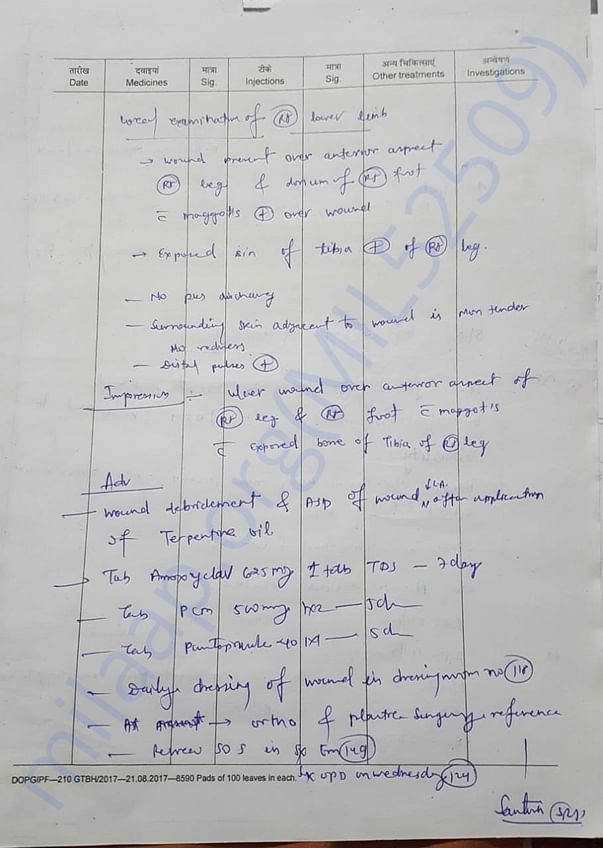 तारीख दवाइयां मात्रा टीके मात्रा अन्य चिकित्साएं अन्वेषण
Date Medicines Sig. Injections Sig. Other treatments Investigations
Local examination of (Rt) lower limb
→ wound present over anterior aspect
(Rt) leg & dorsum of (Rt) foot
c̄ maggots (+) over wound
→ Exposed of tibia (+) of (Rt) leg.
— No pus discharg
— Surrounding skin adjacent to wound is non tender
No redness
— Distal pulses (+)
Impression :- Ulcer wound over anterior aspect of
(Rt) leg & (Rt) foot c̄ maggot's
c̄ exposed bone of Tibia of (Rt) leg
Adv
— wound debridement & ASD of wound ↓LA after application
of Terpentine oil
→ Tab Amoxyclav 625mg 1 tab TDS — 7 day
— Tab PCM 500mg 1x2 — 5d
— Tab Pantoprazole 40 1x1 — 5d
— Daily dressing of wound in dressing room no (118)
— → ortho & plastic surgery reference
— Review SOS in Sx Em (149)
Sx OPD on wednesday (124)
DOPGIPF—210 GTBH/2017—21.08.2017—8590 Pads of 100 leaves in each.
milaap.org(MIL52509)